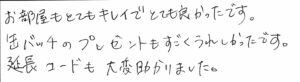 お部屋もとてもキレイでとても良かったです。
缶バッチのプレゼントもすごくうれしかったです。
延長コードも大変助かりました。